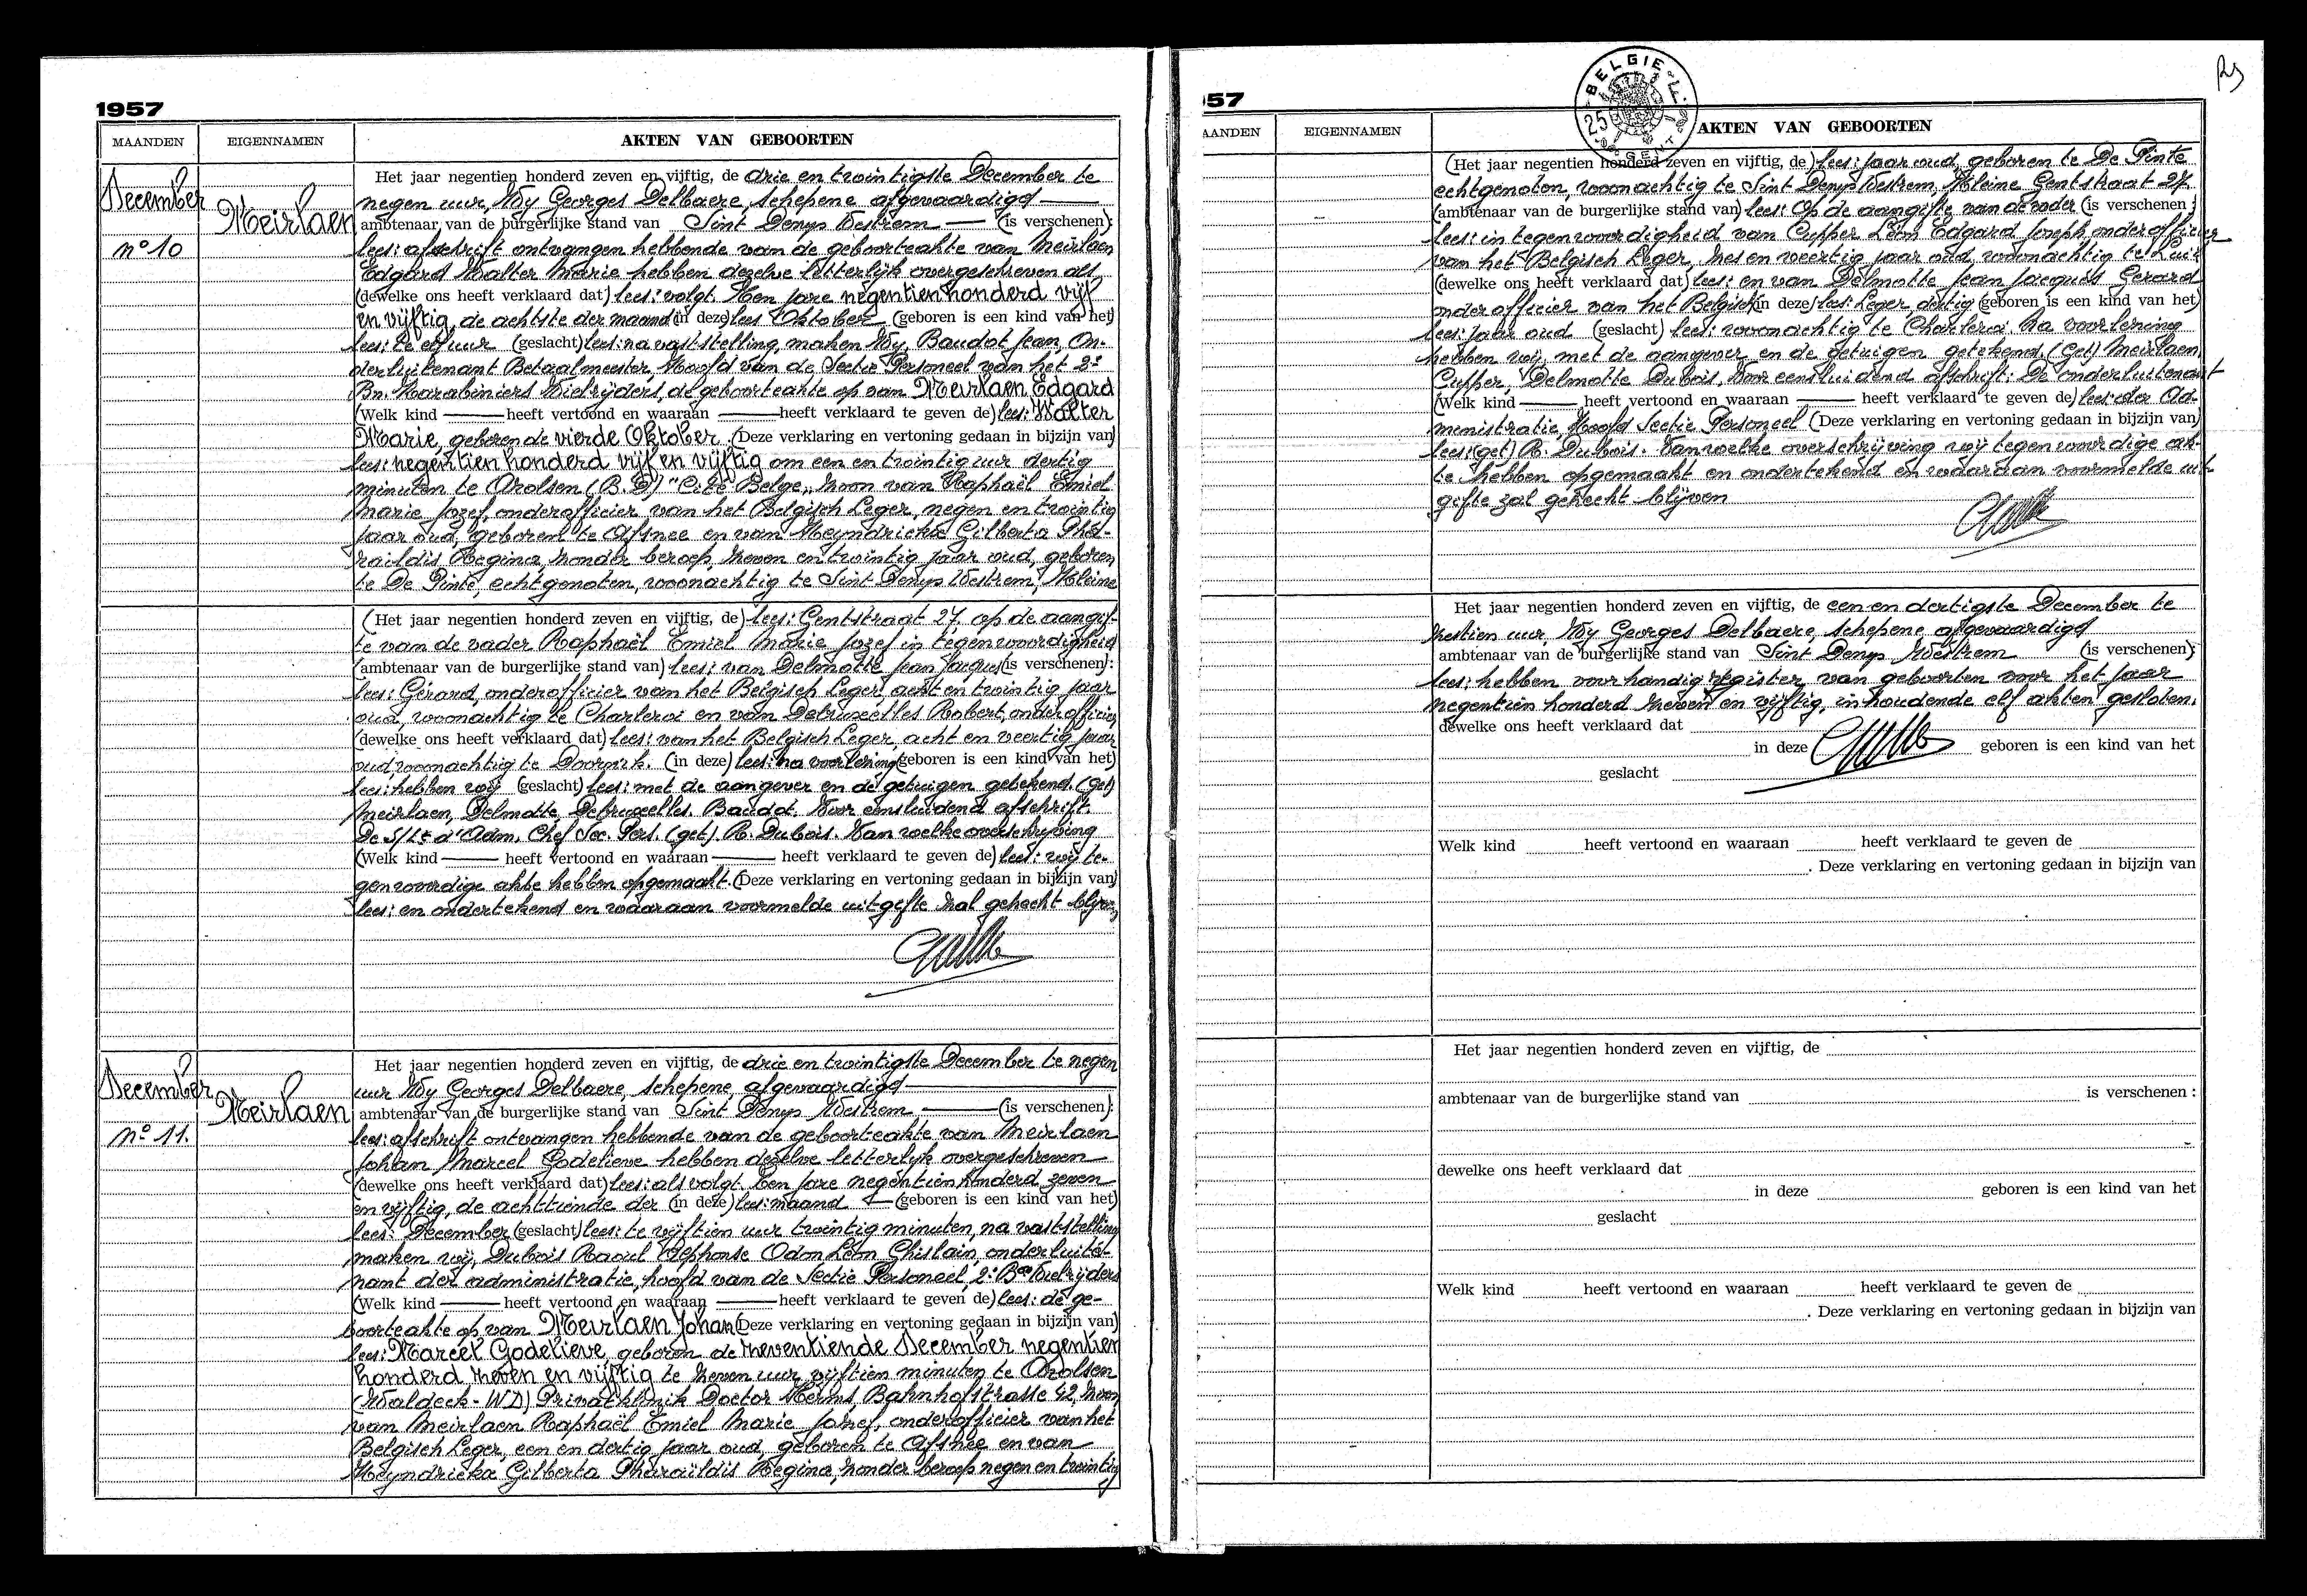 1957
MAANDEN EIGENNAMEN AKTEN VAN GEBOORTEN
December
Meirlaen
nº 10
Het jaar negentien honderd zeven en vijftig, de drie en twintigste December te
negen uur, Wy Georges Delbaere, schepene afgevaardigd
ambtenaar van de burgerlijke stand van Sint Denys Westrem (is verschenen):
lees: afschrift ontvangen hebbende van de geboorteakte van Meirlaen
Edgard Walter Marie hebben dezelve letterlijk overgeschreven als
(dewelke ons heeft verklaard dat) lees: volgt. Ten jare negentien honderd vijf
en vijftig, de achtste der maand (in deze) lees Oktober (geboren is een kind van het)
lees: te elf uur (geslacht) lees: na vaststelling, maken Wy, Baudot Jean, On-
derluitenant Betaalmeester, Hoofd van de Sectie Personeel van het 2e
Bn. Karabiniers Wielrijders, de geboorteakte op van Meirlaen Edgard
(Welk kind heeft vertoond en waaraan heeft verklaard te geven de) lees: Walter
Marie, geboren de vierde Oktober (Deze verklaring en vertoning gedaan in bijzijn van)
lees: negentien honderd vijf en vijftig om een en twintig uur dertig
minuten te Arolsen (B.D) "Cité Belge", zoon van Raphaël Emiel
Marie Jozef, onderofficier van het Belgisch Leger, negen en twintig
jaar oud, geboren te Afsnee en van Heyndrickx Gilberta Pha-
raïldis Regina, zonder beroep, zeven en twintig jaar oud, geboren
te De Pinte, echtgenoten, woonachtig te Sint Denys Westrem, Kleine
(Het jaar negentien honderd zeven en vijftig, de) lees: Gentstraat 27, op de aangif-
te van de vader Raphaël Emiel Marie Jozef in tegenwoordigheid
(ambtenaar van de burgerlijke stand van) lees: van Delmotte Jean Jacques (is verschenen):
lees: Gérard, onderofficier van het Belgisch Leger, acht en twintig jaar
oud, woonachtig te Charleroi en van Debruxelles Robert, onderofficier
(dewelke ons heeft verklaard dat) lees: van het Belgisch Leger, acht en veertig jaar
oud woonachtig te Doornik. (in deze) lees: na voorlezing (geboren is een kind van het)
lees: hebben wij (geslacht) lees: met de aangever en de getuigen getekend. (get)
Meirlaen, Delmotte, Debruxelles. Baudot. Voor eensluidend afschrift.
De S/Lt d'Adm. Chef Sec. Pers. (get). R. Dubois. Van welke overschrijving
(Welk kind heeft vertoond en waaraan heeft verklaard te geven de) lees: wij te-
genwoordige akte hebben opgemaakt. (Deze verklaring en vertoning gedaan in bijzijn van)
lees: en ondertekend en waaraan voormelde uitgifte zal gehecht blijven
December
Meirlaen
nº 11.
Het jaar negentien honderd zeven en vijftig, de drie en twintigste December te negen
uur Wy Georges Delbaere, schepene, afgevaardigd
ambtenaar van de burgerlijke stand van Sint Denys Westrem, (is verschenen):
lees: afschrift ontvangen hebbende van de geboorteakte van Meirlaen
Johan Marcel Godelieve hebben dezelve letterlijk overgeschreven
(dewelke ons heeft verklaard dat) lees: als volgt. Ten jare negentien honderd zeven
en vijftig, de achttiende der (in deze) lees: maand (geboren is een kind van het)
lees: December (geslacht) lees: te vijftien uur twintig minuten, na vaststelling
maken wij, Dubois Raoul Alphonse Odon Léon Ghislain, onderluite-
nant der administratie, hoofd van de Sectie Personeel, 2e Bon Wielrijders
(Welk kind heeft vertoond en waaraan heeft verklaard te geven de) lees: de ge-
boorteakte op van Meirlaen Johan (Deze verklaring en vertoning gedaan in bijzijn van)
lees: Marcel Godelieve, geboren de zeventiende December negentien
honderd zeven en vijftig te zeven uur vijftien minuten te Arolsen
(Waldeck-WD) Privatklinik Doctor Herms, Bahnhofstrasse 42, zoon
van Meirlaen Raphaël Emiel Marie Jozef, onderofficier van het
Belgisch Leger, een en dertig jaar oud, geboren te Afsnee en van
Heyndrickx Gilberta Pharaïldis Regina, zonder beroep negen en twintig
57
AANDEN EIGENNAMEN AKTEN VAN GEBOORTEN
BELGIE
25
GENT
(Het jaar negentien honderd zeven en vijftig, de) lees: jaar oud, geboren te De Pinte
echtgenoten, woonachtig te Sint Denys Westrem, Kleine Gentstraat 27.
(ambtenaar van de burgerlijke stand van) lees: Op de aangifte van de vader (is verschenen:
lees: in tegenwoordigheid van Cupper Léon Edgard Joseph onderofficier
van het Belgisch Leger, zes en veertig jaar oud, woonachtig te Luik
(dewelke ons heeft verklaard dat) lees: en van Delmotte Jean Jacques Gerard
onderofficier van het Belgisch (in deze) lees: Leger, dertig (geboren is een kind van het)
lees: jaar oud (geslacht) lees: woonachtig te Charleroi. Na voorlezing
hebben wij, met de aangever en de getuigen getekend. (Get) Meirlaen,
Cupper, Delmotte Dubois, Voor eensluidend afschrift: De onderluitenant
(Welk kind heeft vertoond en waaraan heeft verklaard te geven de) lees: der Ad-
ministratie, Hoofd Sectie Personeel (Deze verklaring en vertoning gedaan in bijzijn van)
lees: (get) R. Dubois. Van welke overschrijving wij tegenwoordige ak-
te hebben opgemaakt en ondertekend en waaraan voormelde uit-
gifte zal gehecht blijven
Het jaar negentien honderd zeven en vijftig, de een en dertigste December te
zestien uur, Wy Georges Delbaere, schepene, afgevaardigd
ambtenaar van de burgerlijke stand van Sint Denys Westrem (is verschenen):
lees: hebben voorhandig register, van geboorten voor het jaar
negentien honderd zeven en vijftig, inhoudende elf akten gesloten.
dewelke ons heeft verklaard dat
in deze geboren is een kind van het
geslacht
Welk kind heeft vertoond en waaraan heeft verklaard te geven de
. Deze verklaring en vertoning gedaan in bijzijn van
Het jaar negentien honderd zeven en vijftig, de
ambtenaar van de burgerlijke stand van is verschenen :
dewelke ons heeft verklaard dat
in deze geboren is een kind van het
geslacht
Welk kind heeft vertoond en waaraan heeft verklaard te geven de
. Deze verklaring en vertoning gedaan in bijzijn van